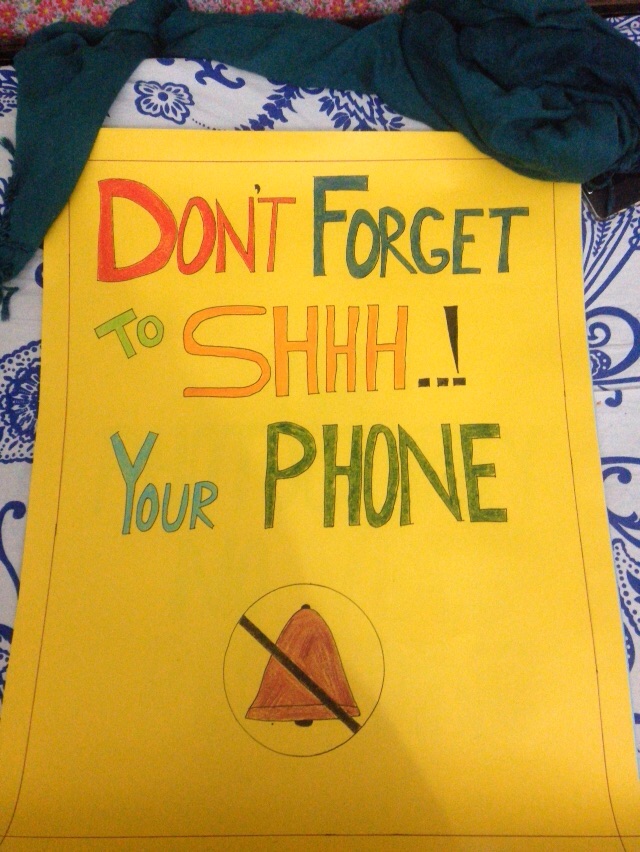 DON'T FORGET
TO SHHH..!
YOUR PHONE